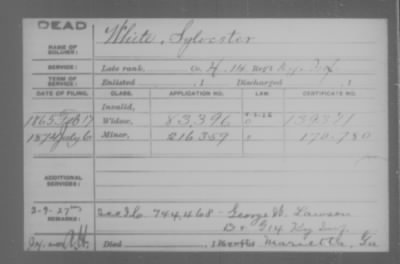 DEAD
NAME OF SOLDIER: White, Sylvester
SERVICE: Late rank, Co. H, 14 Reg't Ky. Inf.
TERM OF SERVICE: Enlisted , 1 Discharged , 1
DATE OF FILING. CLASS. APPLICATION NO. LAW. CERTIFICATE NO.
Invalid,
1865 Feb 17 Widow, 83,396 139371
1874 July 6 Minor, 216359 " 170.780
ADDITIONAL SERVICES:
REMARKS: 744,468 - George W. Lawson
G 14 Ky Inf.
Died Marietta, Ga